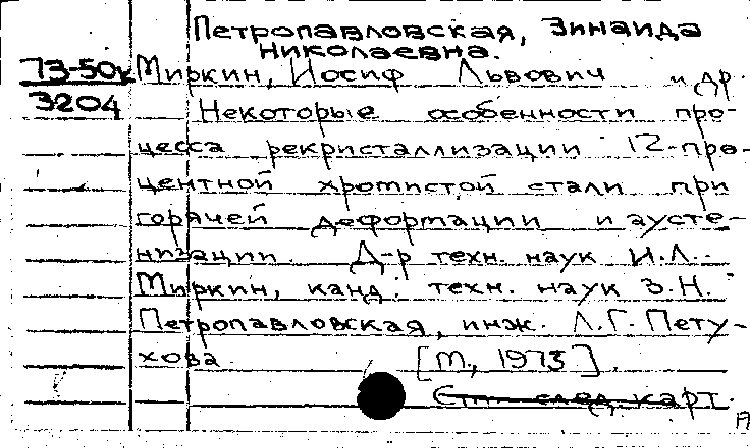 Петропавловская, Зинаида
Николаевна.
73-50к Миркин, Иосиф Львович и др.
3204 Некоторые особенности про-
цесса рекристаллизации 12-про-
центной хромистой стали при
горячей деформации и аусте-
низации. Д-р техн. наук И.Л.
Миркин, канд. техн. наук З.Н.
Петропавловская, инж. Л.Г. Пету-
хова. [М., 1973].
след. карт.